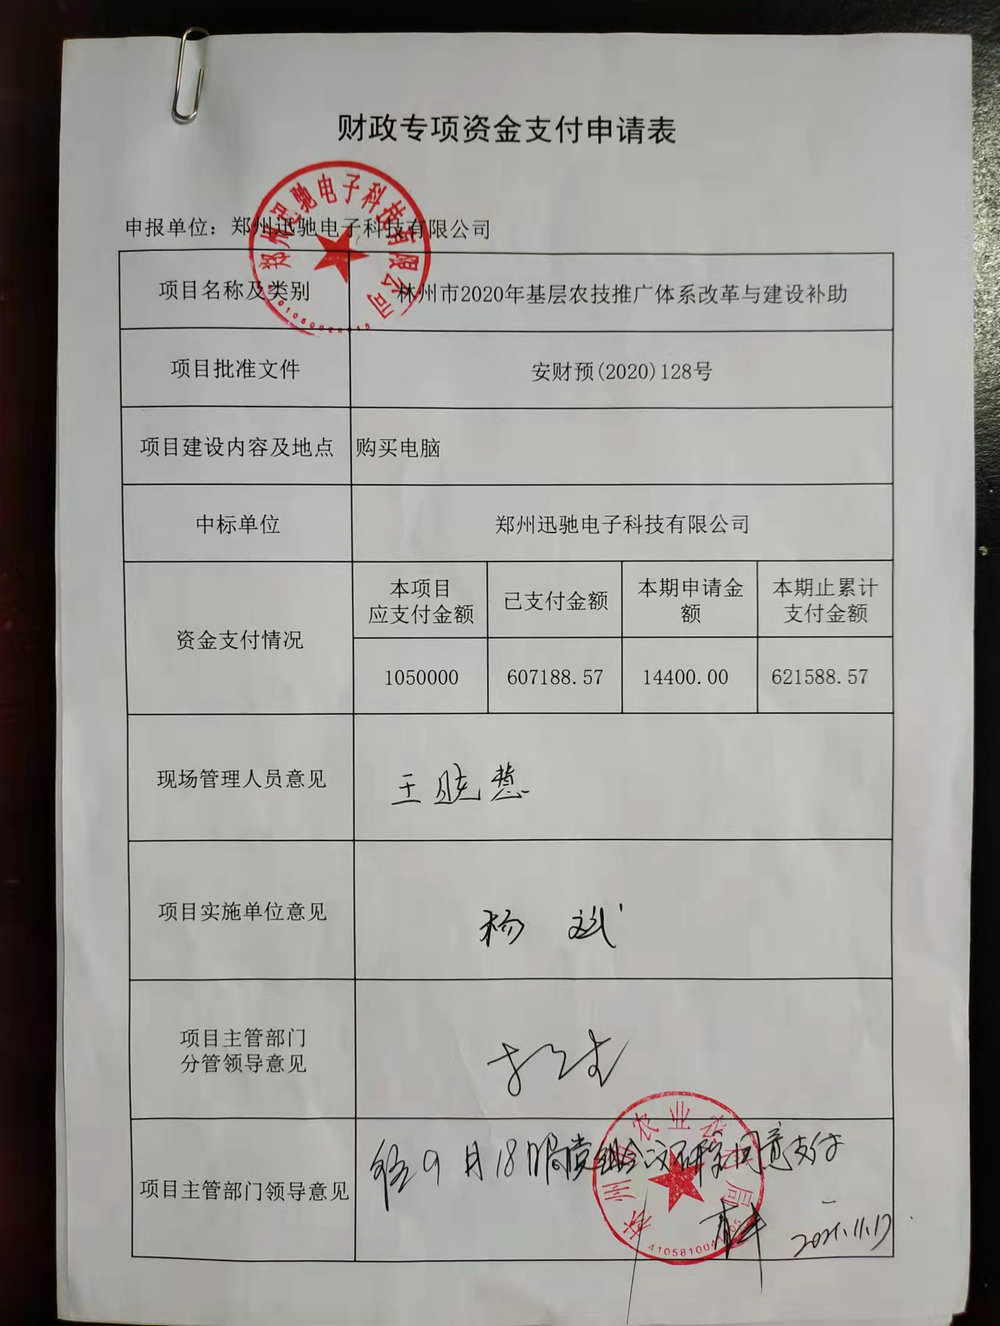 财政专项资金支付申请表
申报单位：郑州迅驰电子科技有限公司
郑州迅驰电子科技有限公司
项目名称及类别
林州市2020年基层农技推广体系改革与建设补助
项目批准文件
安财预(2020)128号
项目建设内容及地点
购买电脑
中标单位
郑州迅驰电子科技有限公司
资金支付情况
本项目
应支付金额
已支付金额
本期申请金
额
本期止累计
支付金额
1050000
607188.57
14400.00
621588.57
现场管理人员意见
王晓慧
项目实施单位意见
杨斌
项目主管部门
分管领导意见
项目主管部门领导意见
经9月18日局党组会议研究同意支付
2021.11.17